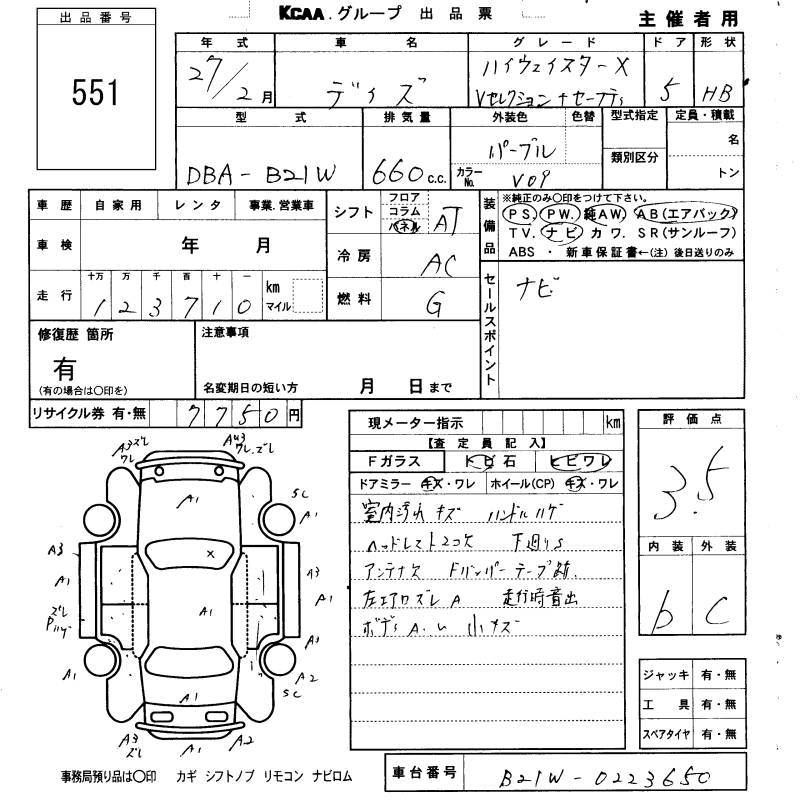 出品番号
551
KCAA.グループ 出品票
主催者用
年式 車名 グレード ドア 形状
27/2月 ディズ ハイウェイスターX Vセレクション+セーフティ 5 HB
型式 排気量 外装色 色替 型式指定 定員・積載
DBA-B21W 660c.c. パープル 名
類別区分
カラーNo. V09 トン
車歴 自家用 レンタ 事業.営業車
車検 年 月
走行 十万 万 千 百 十 一 km マイル
1 2 3 7 1 0
シフト フロア コラム パネル AT
冷房 AC
燃料 G
装備品 ※純正のみ○印をつけて下さい。
PS. PW. 純AW. AB(エアバック)
TV. ナビ カワ. SR(サンルーフ)
ABS ・ 新車保証書←(注)後日送りのみ
セールスポイント ナビ
修復歴 箇所
有
(有の場合は○印を)
注意事項
名変期日の短い方 月 日まで
リサイクル券 有・無 7750円
現メーター指示 km
【査定員記入】
Fガラス トビ石 ヒビワレ
ドアミラー キズ・ワレ ホイール(CP) キズ・ワレ
室内汚れ キズ ハンドルハゲ
ヘッドレスト2コ欠 下廻りS
アンテナ欠 Fバンパーテープ跡.
左エアロズレA 走行時音出
ボディA.U 小キズ
評価点
3.5
内装 外装
b C
ジャッキ 有・無
工具 有・無
スペアタイヤ 有・無
A3ズレ ワレ
AU3 ワレ.ズレ
A1
SC
A1
A3
A1
X
A3
A1
A1
ズレ
Pハゲ
A1
A3
A1
A2
SC
A1
A3 ズレ
A1
A2
事務局預り品は○印 カギ シフトノブ リモコン ナビロム
車台番号 B21W-0223650